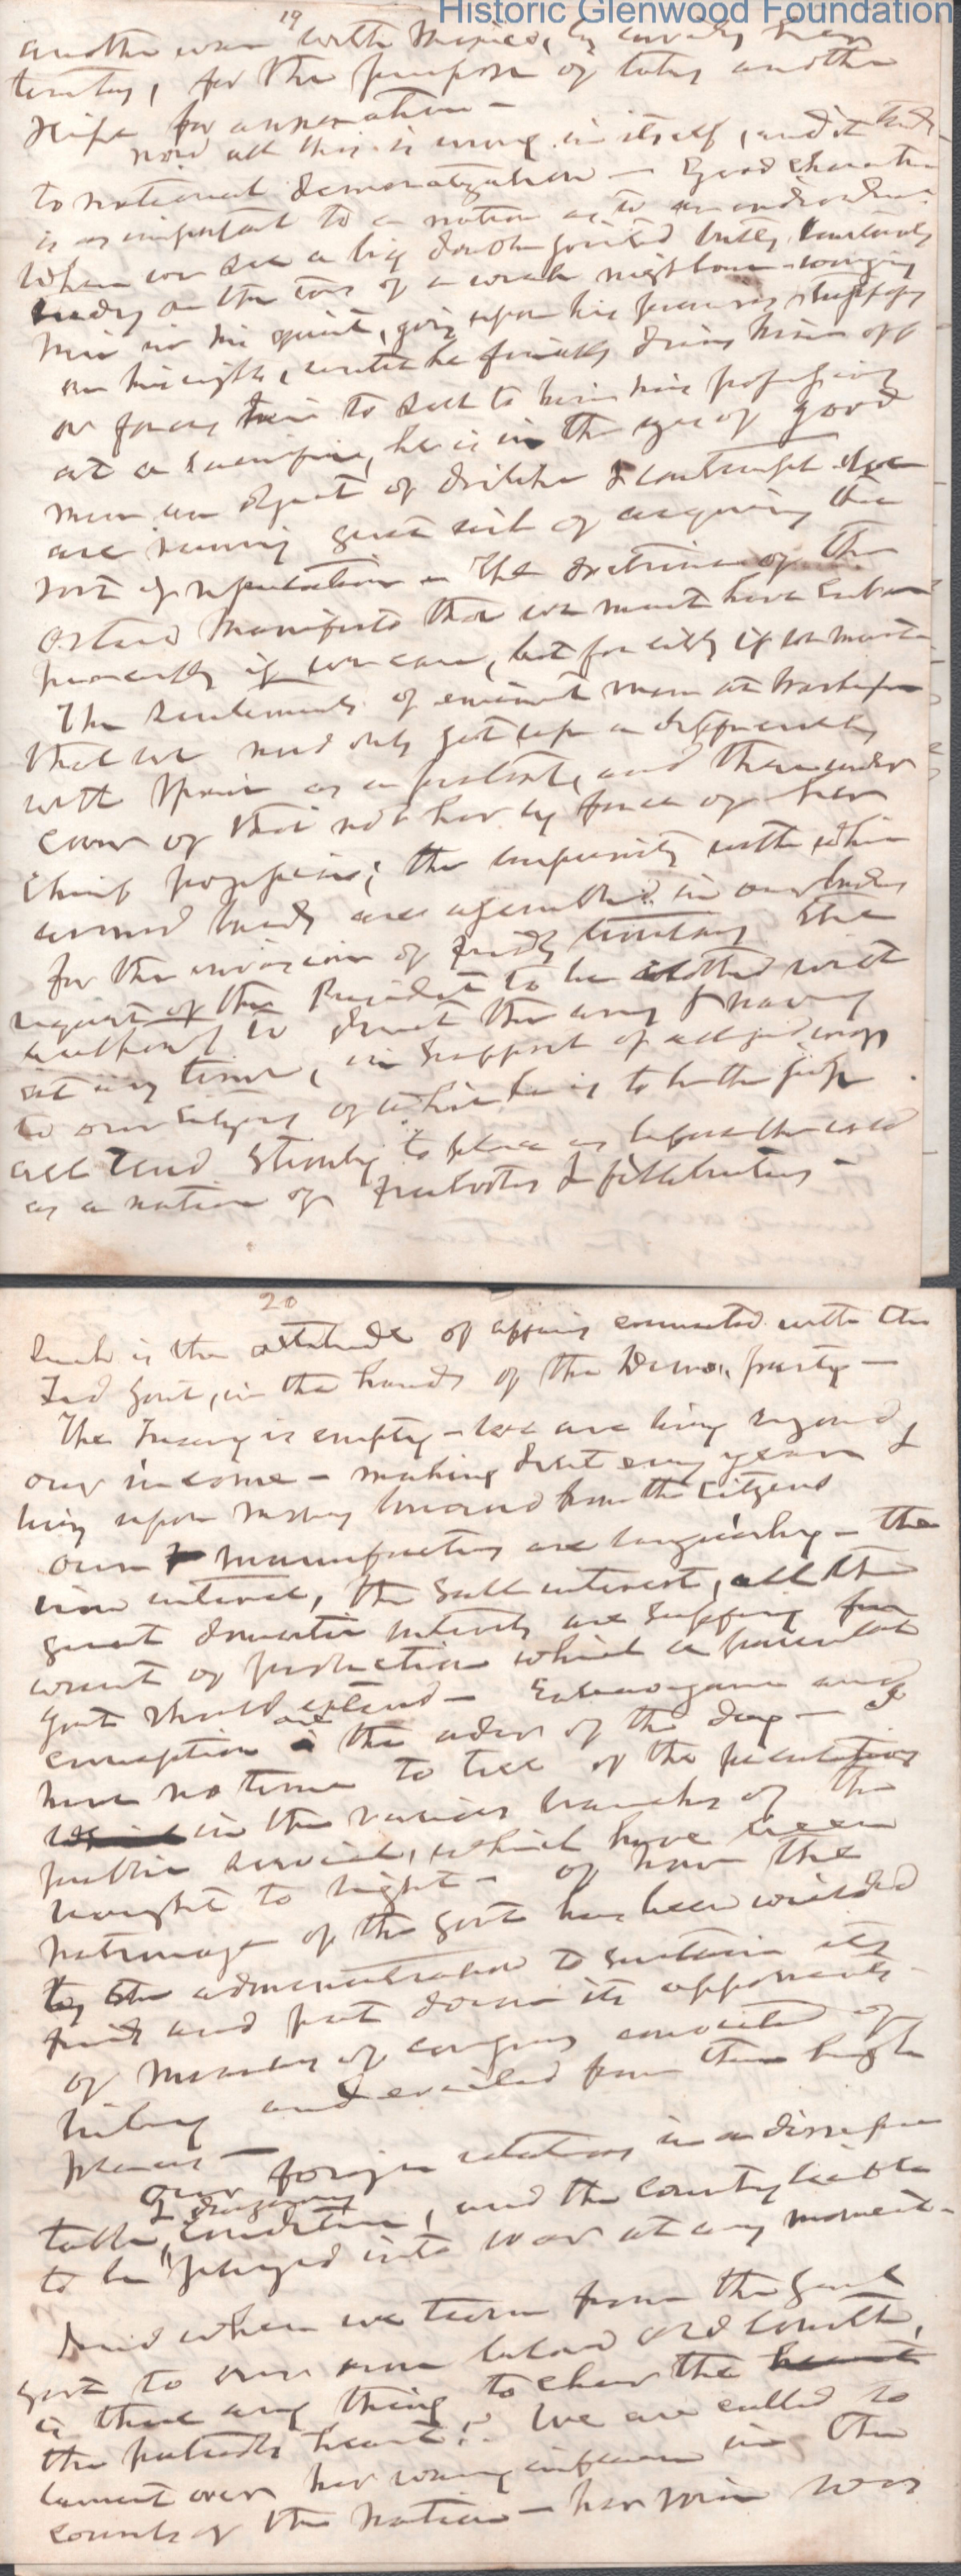 Historic Glenwood Foundation
19
another war with Mexico, by invading her
territory, for the purpose of taking another
slipe for annexation —
Now all this is wrong in itself, and it tends
to national demoralization — Good character
is as important to a nation as to an individual.
When we see a big double jointed bully, constantly
on the toes of a weak neighbour — worrying
him in his quiet, going upon his premises, trespassing
on his rights, until he finally drives him off
or forces him to sell to him his possessions
at a sacrifice, he is in the eyes of good
men an object of dislike & contempt. We
are running great risk of acquiring this
sort of reputation — The doctrine of the
Ostend Manifesto that we must have Cuba
peaceably if we can, but forcibly if we must —
The sentiments of eminent men at Washington
that we need only get up a difficulty
with Spain as a pretext, and then under
cover of that rob her by force of her
chief possession; the impunity with which
armed bands are assembled in our borders
for the invasion of friendly territory The
request of the President to be clothed with
authority to direct the army & navy
at any time, in support of alleged wrongs
to our citizens of which he is to be the judge .
all tend strongly to place us before the world
as a nation of freebooters & fillibusters —
20
Such is the attitude of affairs connected with the
Fed Govt, in the hands of the Demo. party —
The Treasury is empty — we are living beyond
our income — making debt every year &
living upon money borrowed from the citizens
our manufactures are languishing — the
iron interest, the salt interest, all the
great domestic interests are suffering for
want of protection which a parental
Govt should extend — Extravagance and
corruption are the order of the day — I
have no time to tell of the peculations
in the various branches of the
public service, which have been
brought to light — of how the
patronage of the Govt has been wielded
by the administration to sustain its
friends and put down its opponents
of members of congress convicted of
bribery and expelled from their high
places —
Our foreign relations in a disreputable
& dangerous
condition, and the country liable
to be plunged into war at any moment —
And when we turn from the Genl
Govt to our own beloved old Commonwlth,
is there any thing to cheer the
the patriots heart? We are called to
lament over her waning influence in the
counsels of the Nation — her voice was